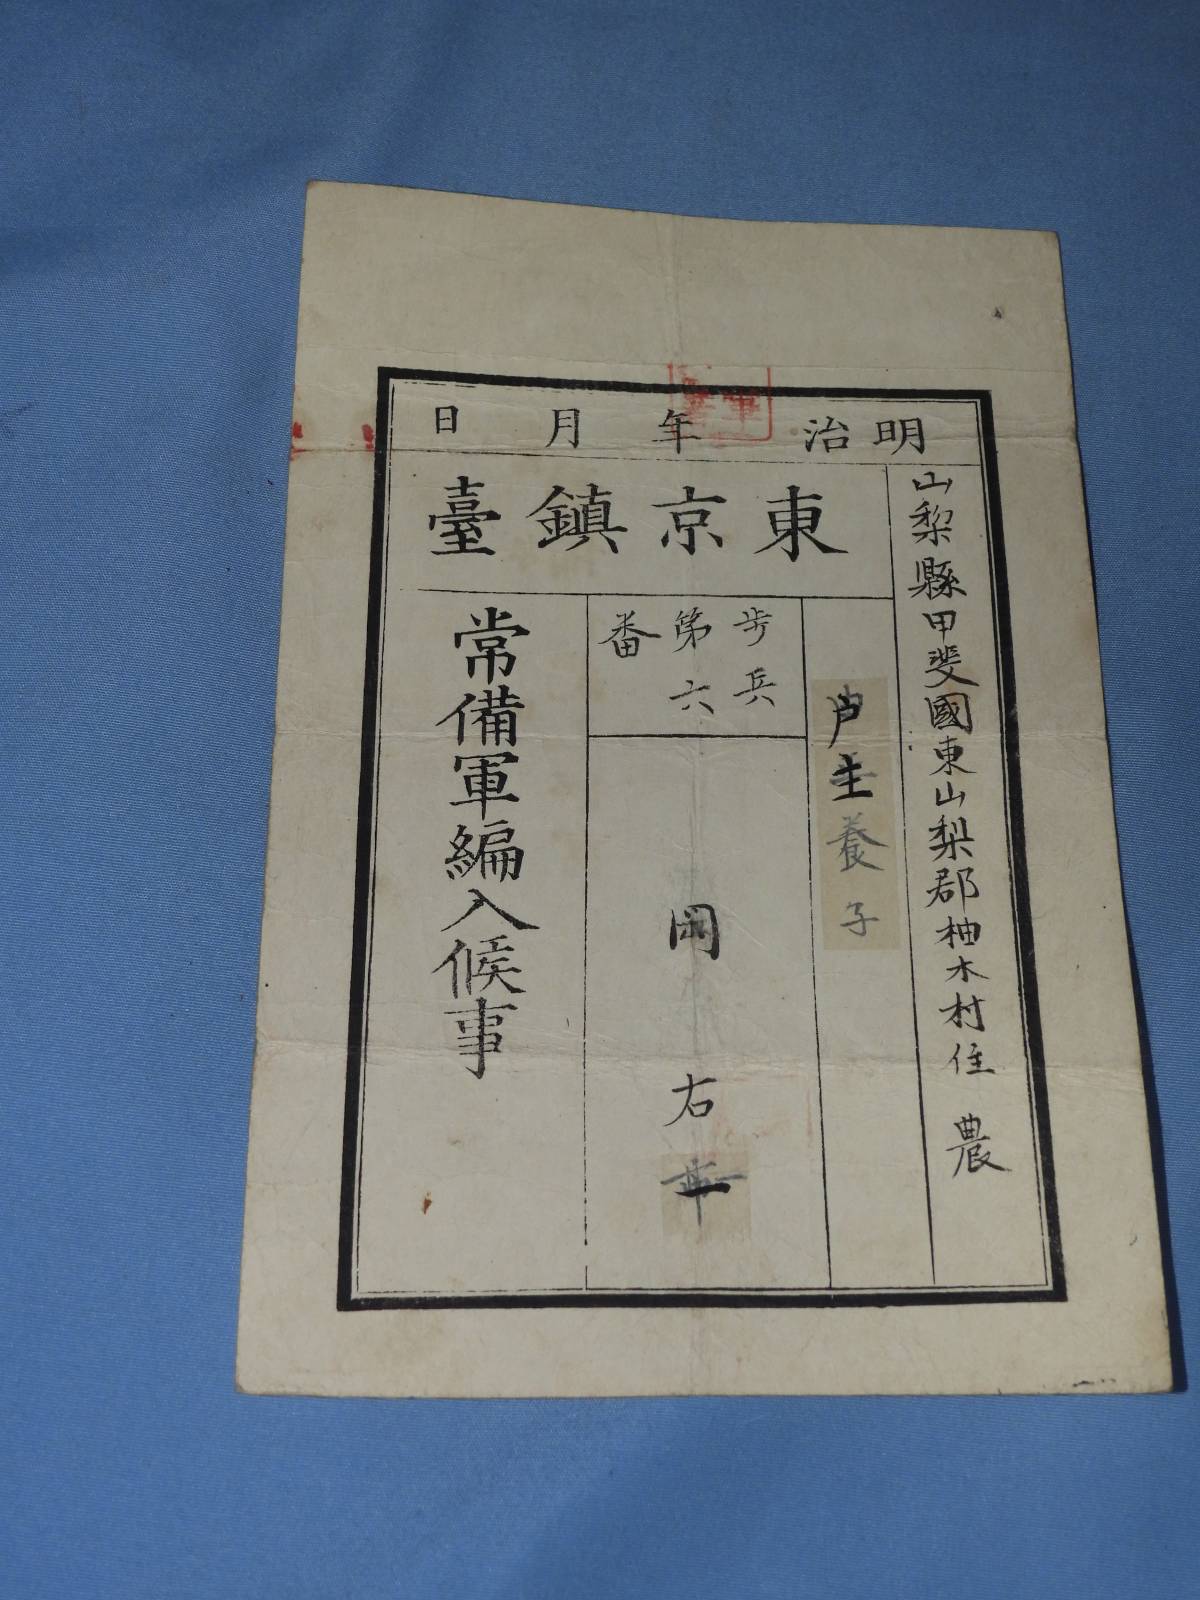 明治 年 月 日
山梨縣甲斐國東山梨郡柚木村住 農
東京鎮臺
戸主養子
歩兵
第六
番
岡 右一
常備軍編入候事